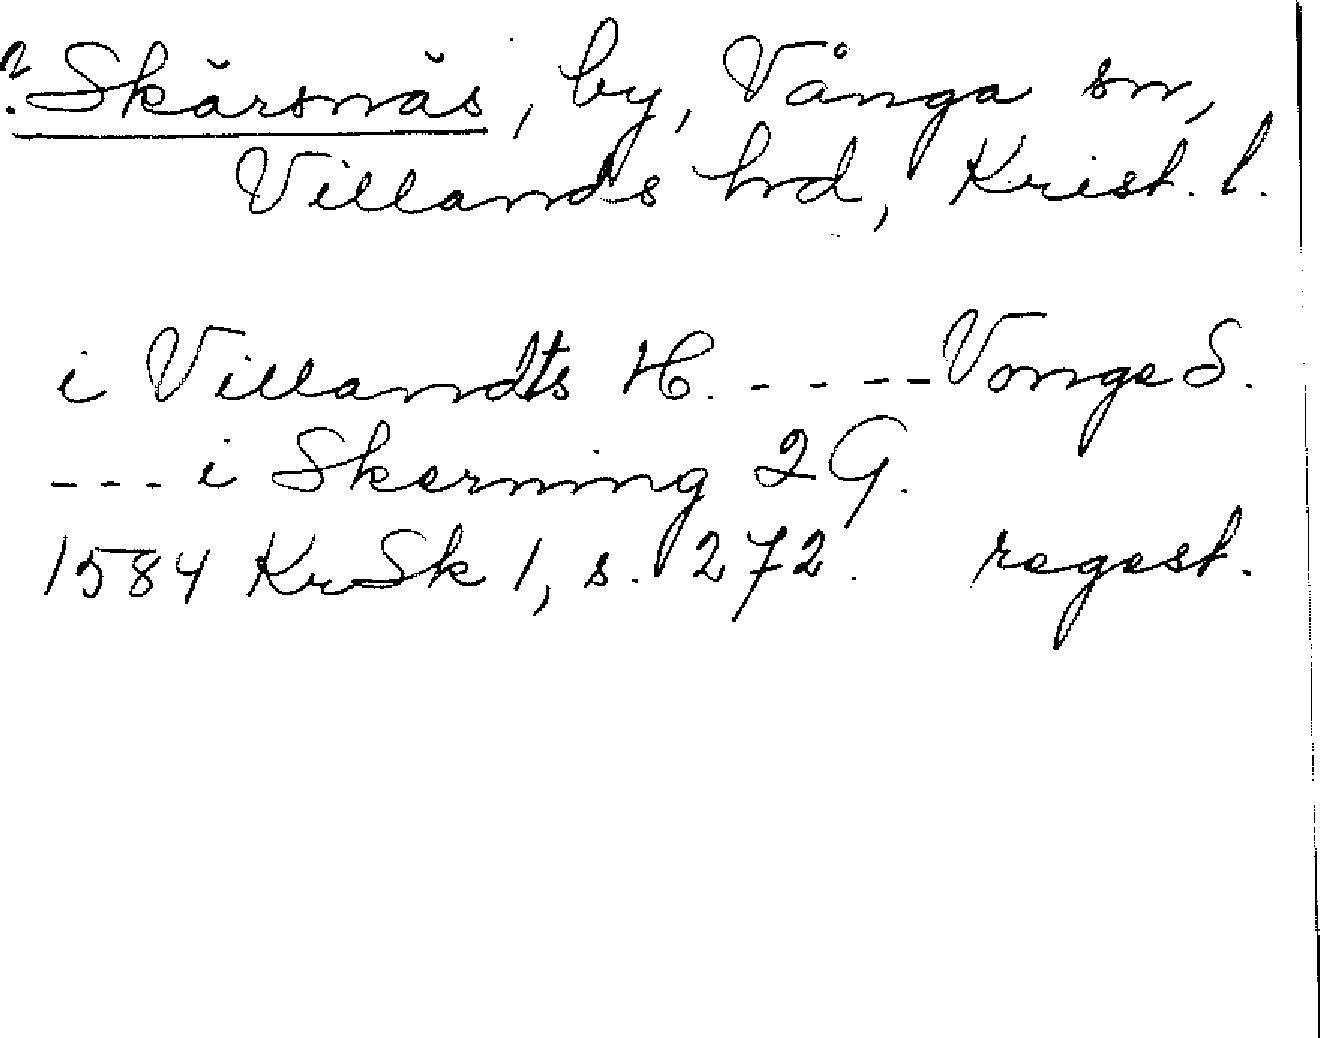 ? Skärsnäs, by, Vånga sn,
Villands hrd, Krist. l.
i Villandts H. - - - - Vonge S.
- - - i Skerning 2 G.
1584 KrSk 1, s. 272. regest.